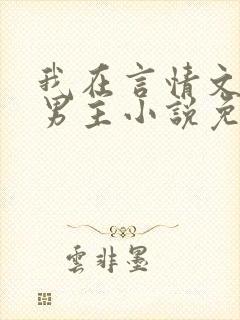 我在言情文
男主小説免
雲非墨